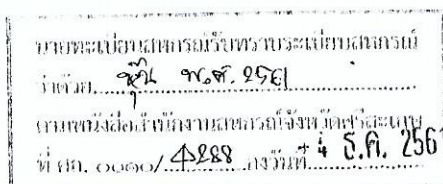 นายทะเบียนสหกรณ์รับทราบระเบียบสหกรณ์
ว่าด้วย....หุ้น พ.ศ. 2561
ตามหนังสือสำนักงานสหกรณ์จังหวัดศรีสะเกษ
ที่ ศก. ๐๐๑๐/4288 ลงวันที่ 4 ธ.ค. 256